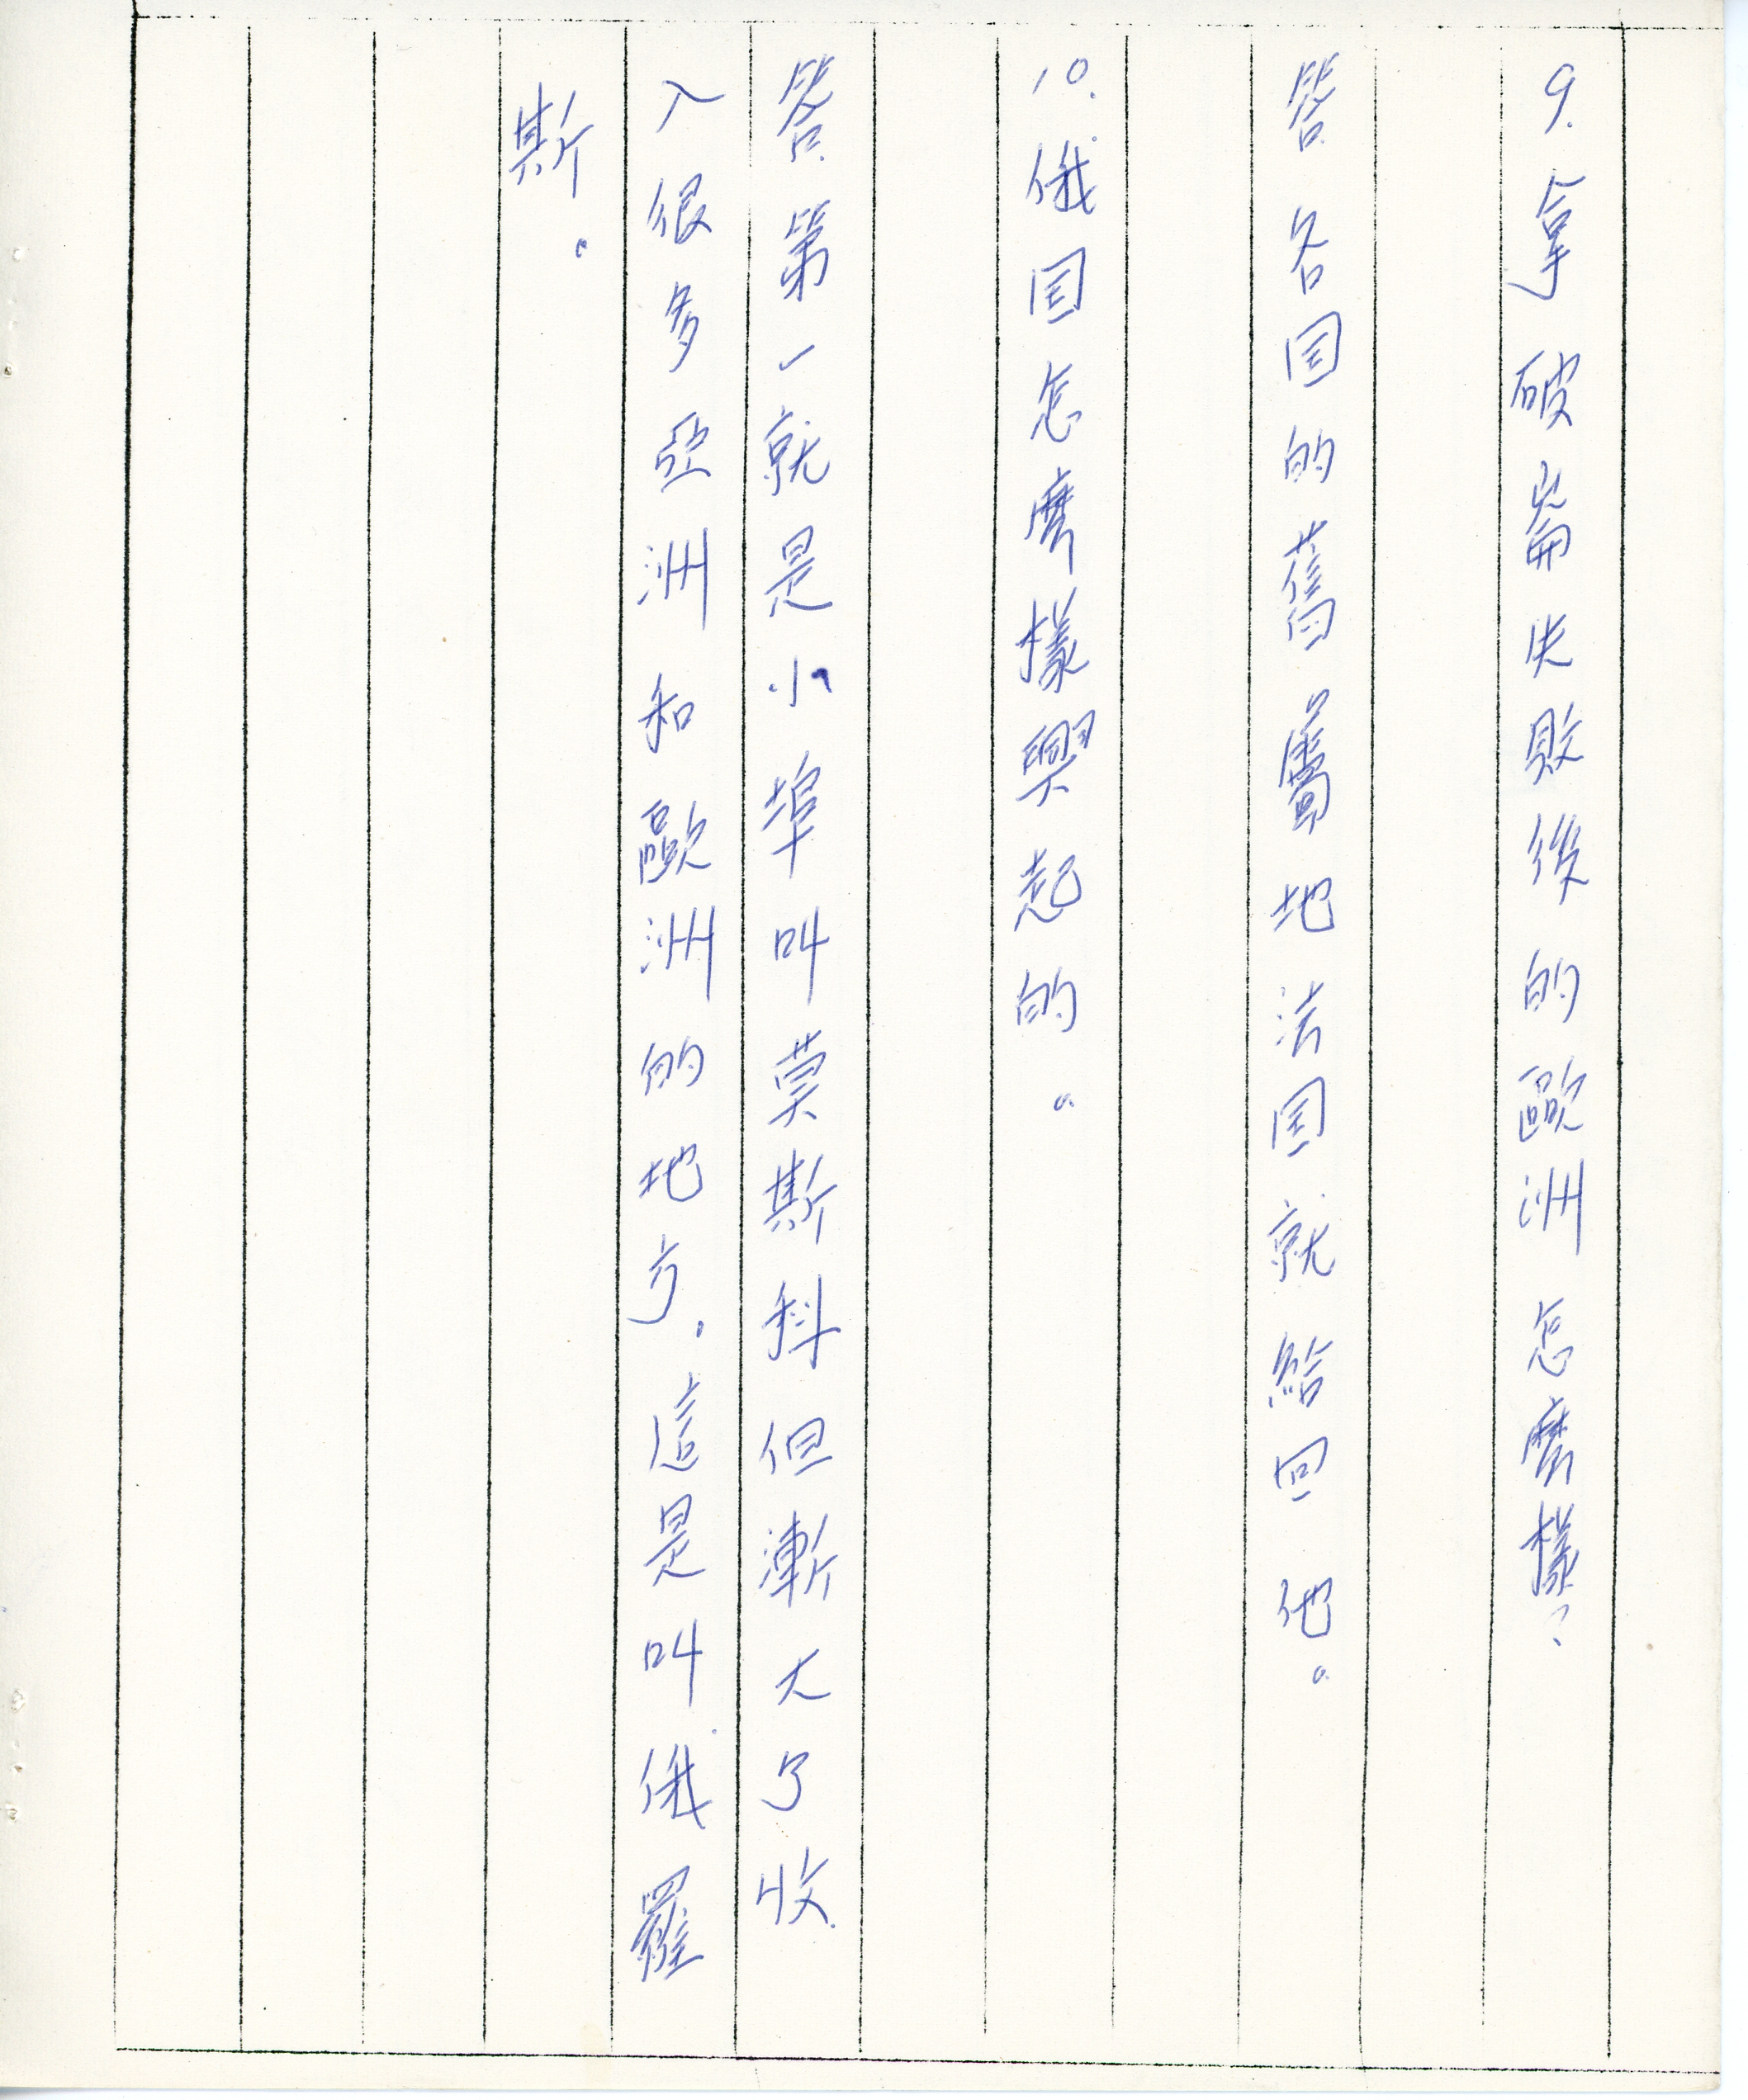 9.拿破崙失敗後的歐洲怎麼樣？
答各国的舊屬地法国就給回他。
10.俄国怎麼樣興起的。
答第一就是小埠叫莫斯科但漸大了收
入很多亞洲和歐洲的地方。這是叫俄羅
斯。